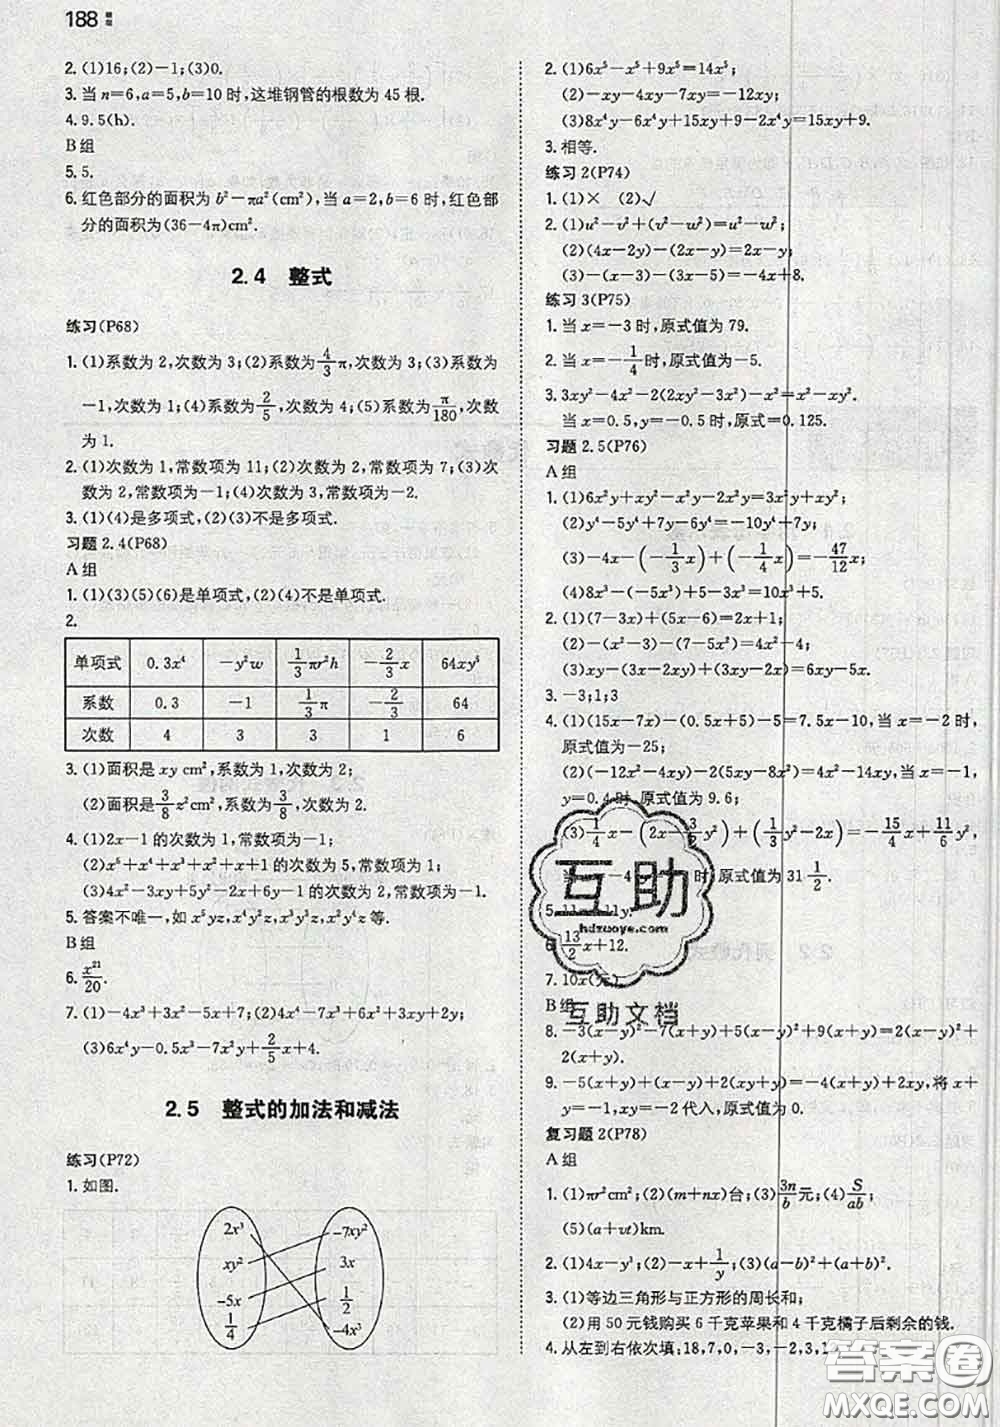 188
2.(1)16;(2)-1;(3)0.
3.当n=6,a=5,b=10时,这堆钢管的根数为45根.
4.9.5(h).
B组
5.5.
6.红色部分的面积为b²-πa²(cm²),当a=2,b=6时,红色部
分的面积为(36-4π)cm².
2.4 整式
练习(P68)
1.(1)系数为2,次数为3;(2)系数为4/3π,次数为3;(3)系数为
-1,次数为1;(4)系数为2/5,次数为4;(5)系数为π/180,次数
为1.
2.(1)次数为2,常数项为11;(2)次数为2,常数项为7;(3)次
数为2,常数项为-1;(4)次数为3,常数项为-2.
3.(1)(4)是多项式,(2)(3)不是多项式.
习题2.4(P68)
A组
1.(1)(3)(5)(6)是单项式,(2)(4)不是单项式.
2.
单项式 0.3x⁴ -y²w 1/3πr²h -2/3x 64xy⁵
系数 0.3 -1 1/3π -2/3 64
次数 4 3 3 1 6
3.(1)面积是xy cm²,系数为1,次数为2;
(2)面积为3/8z²cm²,系数为3/8,次数为2.
4.(1)2x-1的次数为1,常数项为-1;
(2)x⁵+x⁴+x³+x²+x+1的次数为5,常数项为1;
(3)4x²-3xy+5y²-2x+6y-1的次数为2,常数项为-1.
5.答案不唯一,如x⁵yz,x⁴y²z,x³y³z,x²y⁴z等.
B组
6.x²¹/20.
7.(1)-4x³+3x²-5x+7;(2)2x⁴-7x³-4x²+x-1;
(3)6x⁴y-0.5x³y²-x²y+2/5x+4.
2.5 整式的加法和减法
练习(P72)
1.如图.
2x³ -7xy²
xy² 3x
-5x 1/2
1/4 -4x³
2.(1)6x⁵-x⁵+9x⁵=14x⁵;
(2)-xy-4xy-7xy=-12xy;
(3)8x⁴y-6x⁴y+15xy+9=2x⁴y+15xy+9.
3.相等.
练习2(P74)
1.(1)× (2)√
2.(1)u²-v²+(v²-w²)=u²-w²;
(2)(4x-2y)-(2x-y)=2x-y;
(3)-(x-3)-(3x-5)=-4x+8.
练习3(P75)
1.当x=-3时,原式值为79.
2.当x=-1/4时,原式值为-5.
3.3xy²-4x²-2(2xy²-3x²)-x²=-xy²+x².
当x=0.5,y=-0.5时,原式=0.125.
习题2.5(P76)
A组
1.(1)6x²y+xy²-3x²y-2xy²=3x²y+xy²;
(2)y⁴-5y⁴+6y⁴-y+8y=-10y⁴+7y;
(3)-4x-(-1/3x)+(-1/4x)=-47/12x;
(4)8x³-(-x³)+5-3x³-5=10x³.
2.(1)(7-3x)+(5x-6)=2x+1;
(2)-(x²-3)-(7-5x²)=4x²-4;
(3)(xy-5x)-(xy-3x)+3x=6xy-5x.
3.-3;1;3
4.(1)(15x-7x)-(0.5x+5)-5=7.5x-10,当x=-2时,
原式值为-25;
y=0.4时,原式值为9.6;
(3)1/4x-(2x-3/2y²)+(1/3y²-2x)=-15/4x+11/6y²,
时,原式值为31 1/2.
6.13/2x+12.
7.10x(元).
B组
8.-3(x-y)²-7(x+y)+5(x-y)²+9(x+y)=2(x-y)²+
2(x+y).
9.-5(x+y)+(x-y)-2(x+y)+4x=-2x-4y+4x,将
x=-1,x=-2代入,原式值为0.
复习题2(P78)
A组
1.(1)πr²cm²;(2)(m+nx)台;(3)3n/b元;(4)S/ab;
(5)(a+vt)km.
2.(1)4x-y³;(2)-x+1/y;(3)(a-b)²+(a+b)².
3.(1)等边三角形与正方形的周长和;
(2)用50元钱购买6千克苹果和4千克橘子后剩余的钱.
4.从左到右依次填:18,7,0,-3,-2,3,1
互助
hdzuoye.com
互助文档
答案圈
MXQE.COM